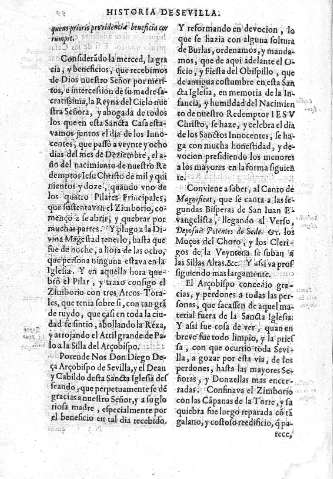 HISTORIA DE SEVILLA.
quens prioris providentia beneficia cor
rumpet.
Considerādo la merced, la gra
cia, y beneficios, que recebimos
de Dios nuestro Señor por meri-
tos, e intercession de su madre sa-
cratissima, la Reyna del Cielo nue
stra Señora, y abogada de todos
los que en esta Sancta Casa esta-
vamos juntos el dia de los Inno-
centes, que passò a veynte y ocho
dias del mes de Deziembre, el a-
ño del nacimiento de nuestro Re
demptor Iesu Christo de mil y qui
nientos y doze, quando uno de
los quatro Pilares Principales,
que sustentavan el Zimborio, co-
mençò a se abrir, y quebrar por
muchas partes. Y plugo a la Di-
vina Magestad tenerlo, hasta que
fue de noche, a hora de las ocho,
que persona ninguna estava en la
Iglesia. Y en aquella hora que-
brò el Pilar, y traxo consigo el
Zimborio con tres Arcos Tora-
les, que tenia sobre si, con tan grā
de ruydo, que casi en toda la ciu-
dad se sintio, abollando la Rexa,
y arrojando el Atril grande de Pa-
lo a la Silla del Arçobispo.
Por ende Nos Don Diego De-
ça Arçobispo de Sevilla, y el Deau
y Cabildo desta Sancta Iglesia des
seando, que perpetuamente se dè
gracias a nuestro Señor, y a su glo
riosa madre, especialmente por
el beneficio en tal dia recebido.
Y reformando en devocion, lo
que se hazia con alguna soltura
de Burlas, ordenamos, y manda-
mos, que de aqui adelante el Ofi-
cio, y Fiesta del Obispillo, que
de antigua costumbre en esta San
cta Iglesia, en memoria de la In-
fancia, y humildad del Nacimien
to de nuestro Redemptor IESV
Christo, se haze, y celebra el dia
de los Sanctos Innocentes, se ha-
ga con mucha honestidad, y de-
vocion presidiendo los menores
a los mayores en la forma siguien
te.
Conviene a saber, al Canto de
Magnificat, que se canta a las se-
gundas Bisperas de San Iuan E-
vangelista, llegando al Verso,
Deposuit Potentes de Sede. &c. los
Moços del Choro, y los Cleri-
gos de la Veyntena se suban a
las Sillas Altas.&c. Y assi va pro-
siguiendo mas largamente.
El Arçobispo concedio gra-
cias, y perdones a todas las per-
sonas, que sacassen de aquel ma-
terial fuera de la Sancta Iglesia:
Y assi fue cosa de ver, quan en
breve fue todo limpio, y la pries-
sa, con que ocurrio toda Sevi-
lla, a gozar por esta via, de los
perdones, hasta las mayores Se-
ñoras, y Donzellas mas encer-
radas. Confinava el Zimborio
con las Cāpanas de la Torre, y su
quiebra fue luego reparada cō tā
galano, y costoso reedificio, q̄ pa-
rece,